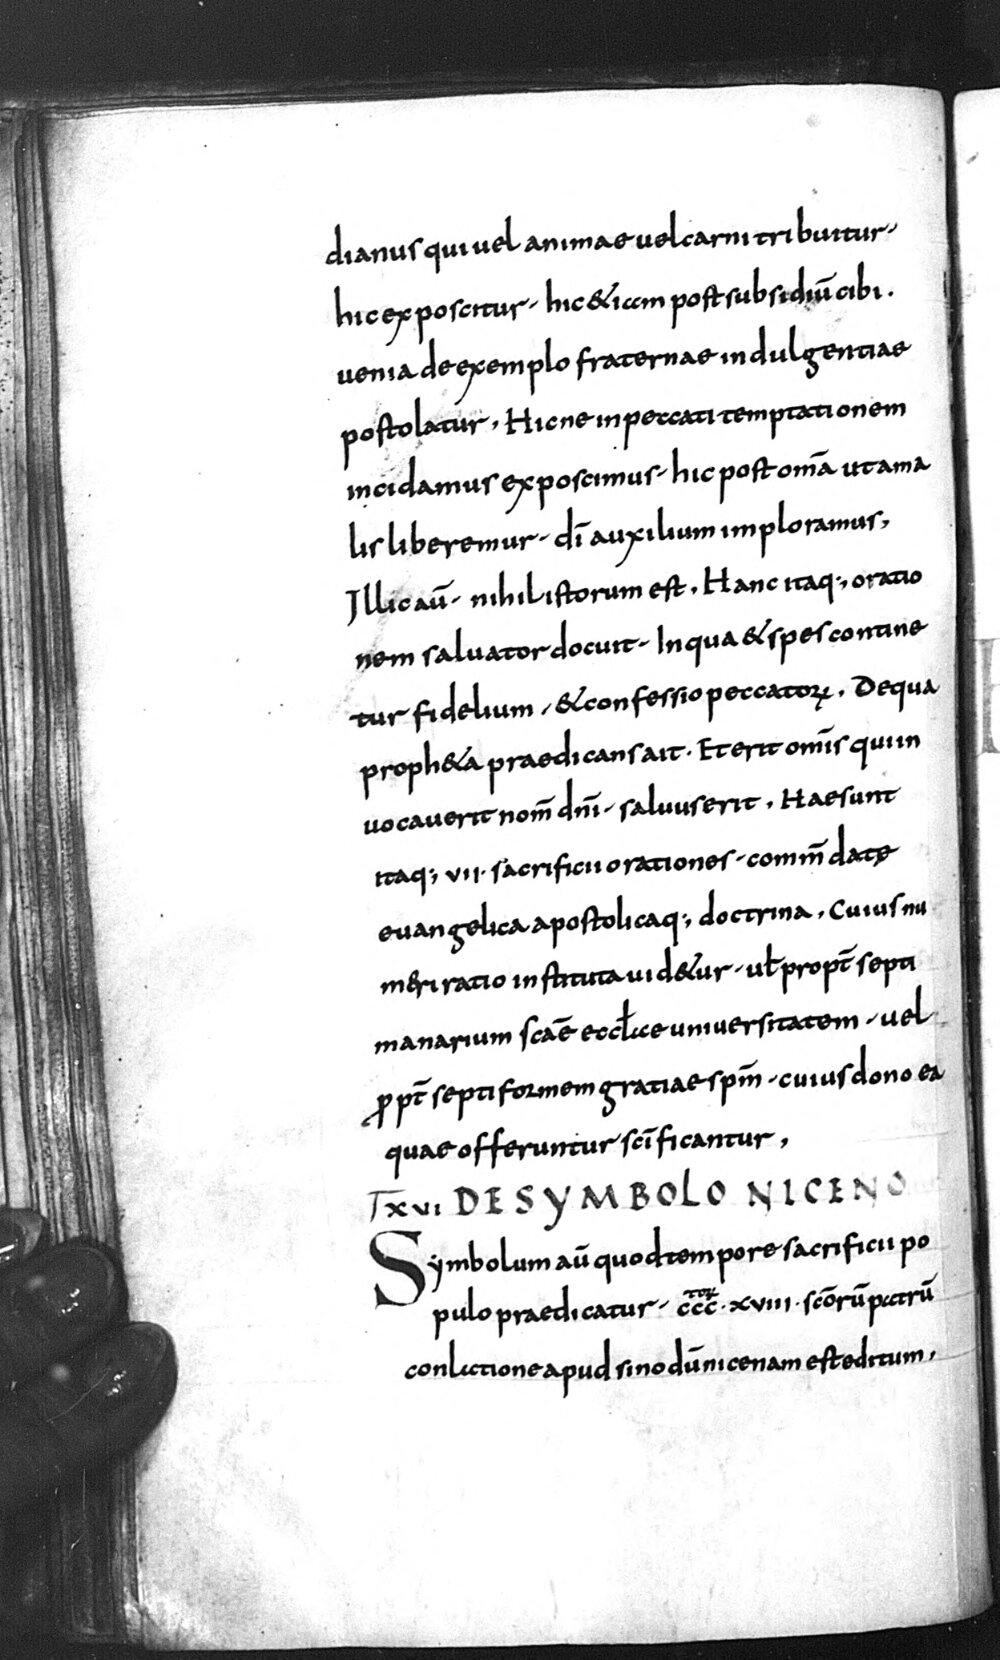 dianus qui uel animae uel carni tribuitur
hic exposcitur. hic & iam post subsidiū cibi.
uenia de exemplo fraternae indulgentiae
postolatur, Hic ne in peccati temptationem
incidamus exposcimus. hic post omā ut a ma
lis liberemur. dī auxilium imploramus,
Illic aū. nihil istorum est, Hanc itaq; oratio
nem saluator docuit. In qua & spes contine
tur fidelium, & confessio peccatoꝝ. De qua
proph&a praedicans ait. Et erit om̄s qui in
uocauerit nom̄ dn̄i. saluus erit, Hae sunt
itaq; vii. sacrificii orationes. comm̄datę
euangelica apostolicaq; doctrina, Cuius nu
meri ratio instituta uid&ur. ut̄ propt̄ septi
manarium scāe eccl̄iae uniuersitatem. uel
ꝓpt̄ septiformem gratiae spm̄. cuius dono ea
quae offeruntur scīficantur,
xvi DE SYMBOLO NICENO
Symbolum aū quod tempore sacrificii po
pulo praedicatur. ccc. xviii. scōrū patrū
conlatione apud sinodū nicenam est editum,